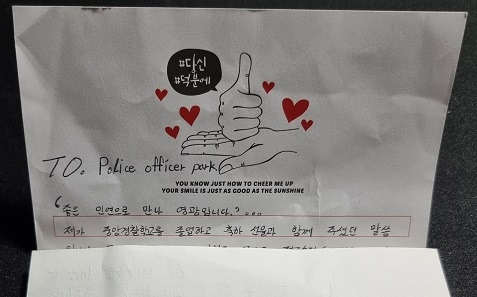 #당신
#덕분에
TO. Police officer park
YOU KNOW JUST HOW TO CHEER ME UP
YOUR SMILE IS JUST AS GOOD AS THE SUNSHINE
"좋은 인연으로 만나 영광입니다."...
제가 중앙경찰학교를 졸업하고 축하 선물과 함께 주셨던 말씀